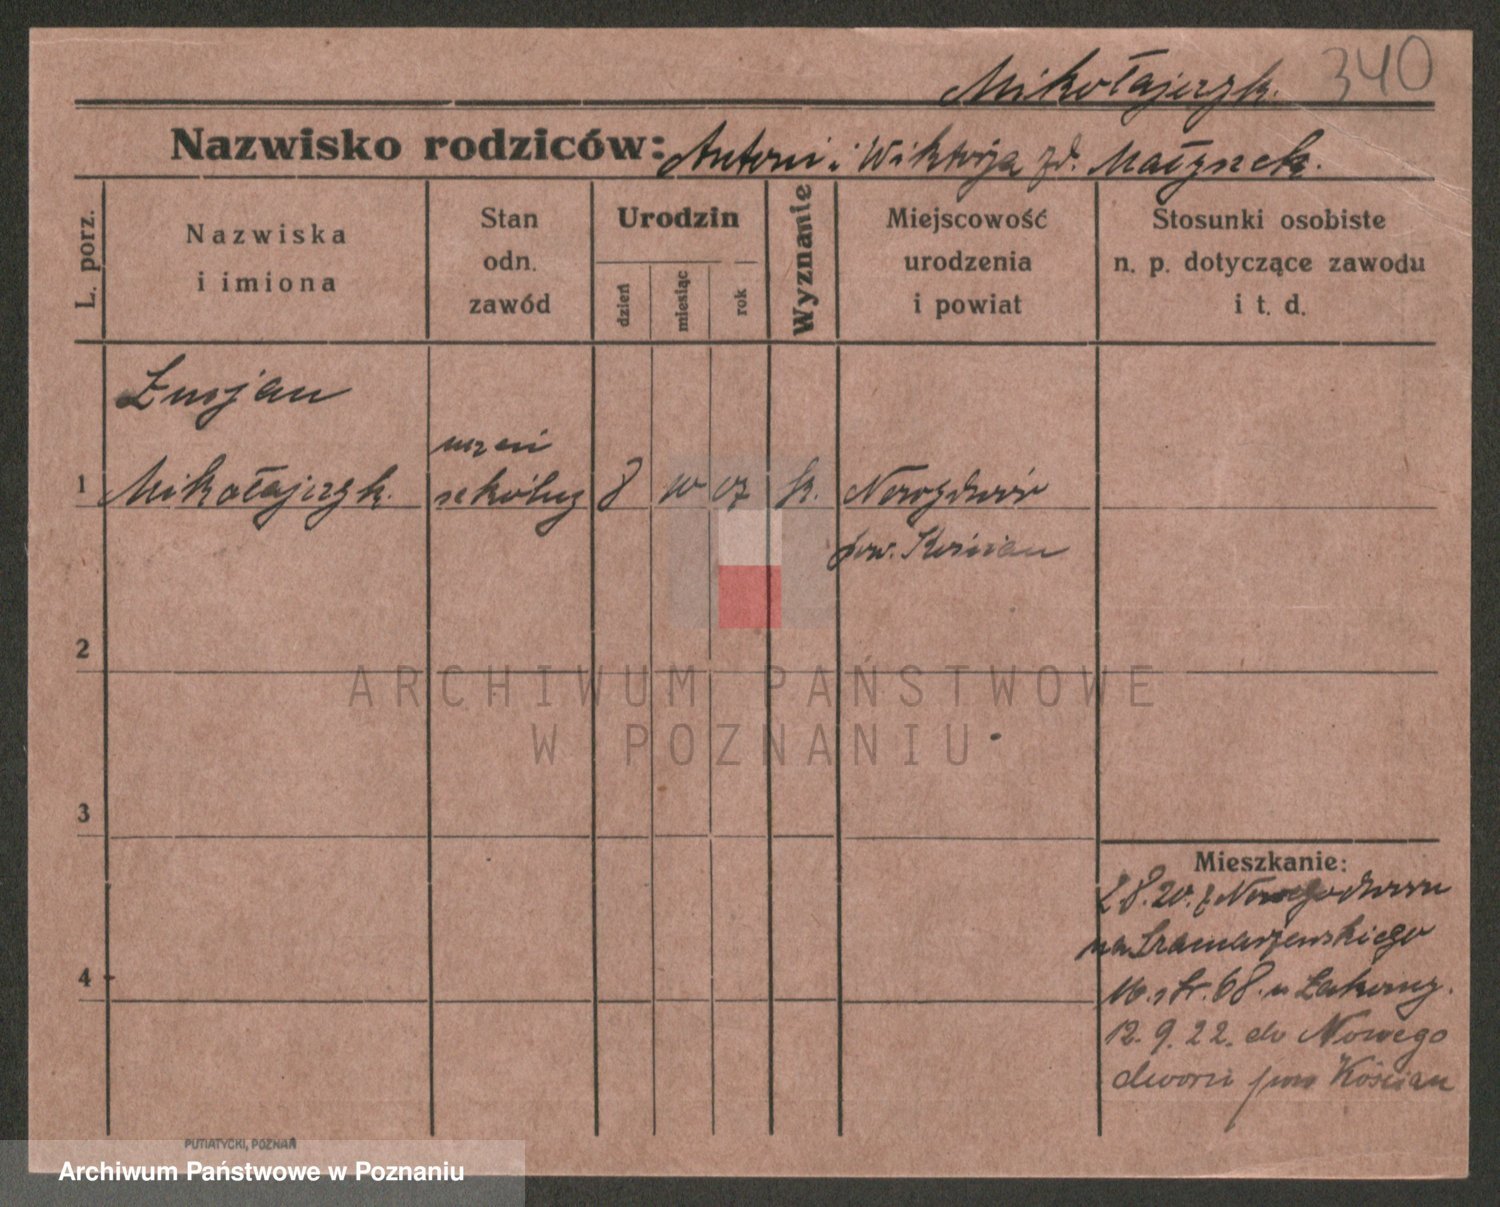 Mikołajczyk. 340
Nazwisko rodziców: Antoni i Wiktorja zd. Małyszek.
L. porz.
Nazwiska
i imiona
Stan
odn.
zawód
Urodzin
dzień
miesiąc
rok
Wyznanie
Miejscowość
urodzenia
i powiat
Stosunki osobiste
n. p. dotyczące zawodu
i t. d.
Łucjan
uczeń
1 Mikołajczyk. szkólny 8 10 07 k. Nowydwór
pow. Kościan
2
ARCHIWUM PAŃSTWOWE
W POZNANIU
3
Mieszkanie:
8.20. z Nowegodworu
na
4
68. u
12.9.22. do Nowego
dworu pow Kościan
PUTIATYCKI, POZNAŃ
Archiwum Państwowe w Poznaniu